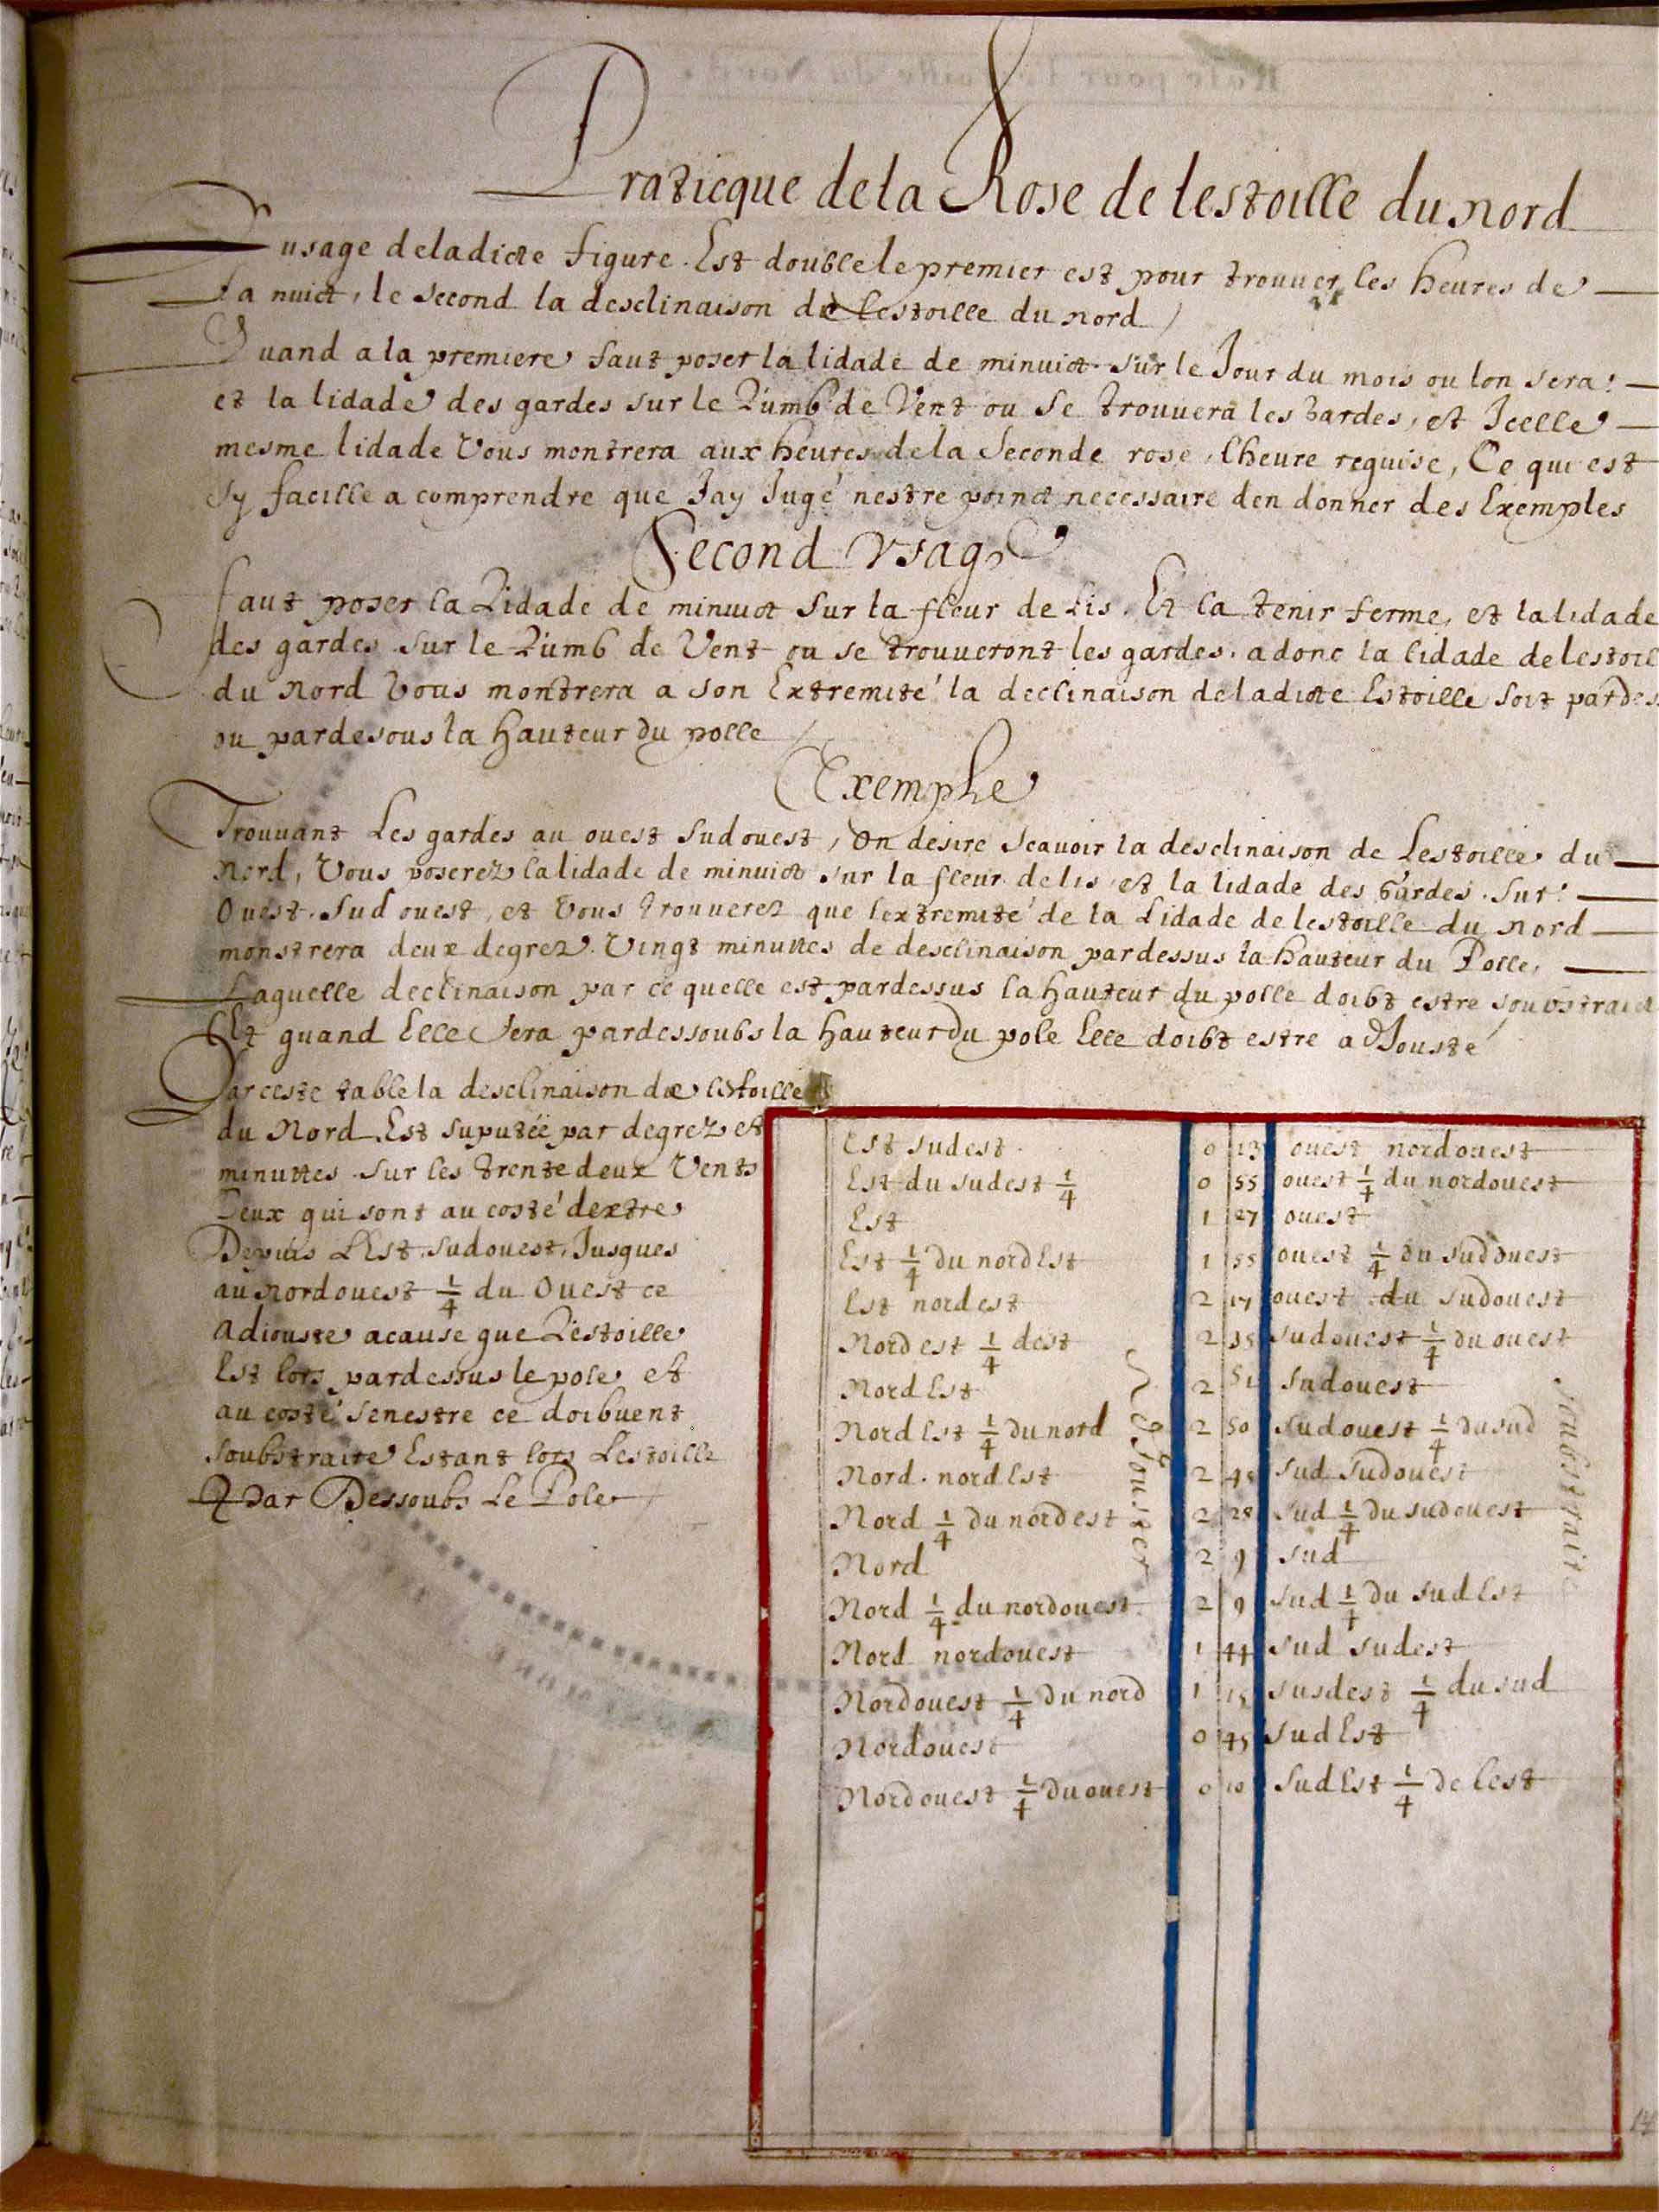 Praticque de la Rose de lestoille du nord
Lusage deladicte figure. Est double le premier est pour trouver les heures de
La nuict, le second la desclinaison de Lestoille du nord /
Quand a la premiere faut poser la lidade de minuict sur le Jour du mois ou lon sera:
et la lidade des gardes sur le Rumb de Vent ou se trouuera les Gardes, et Icelle
mesme lidade Vous montrera aux heures de la Seconde rose, lheure requise, Ce qui est
sy facille a comprendre que Jay Jugé nestre poinct necessaire den donner des Exemples
Second Vsage
faut poser la Lidade de minuict sur la fleur de Lis. Et la tenir ferme, et la lidade
des gardes sur le Rumb de Vent ou se trouueront les gardes. adonc la lidade de lestoil
du Nord Vous montrera a son Extremité la declinaison deladicte Estoille soit pardes
ou pardesous la Hauteur du polle /
Exemple
Trouvant Les gardes au ouest sudouest, On desire scauoir la desclinaison de Lestoille du
Nord, Vous poserez lalidade de minuict sur la fleur delis et la lidade des Gardes. Sur
Ouest. Sud ouest, et Vous trouuerez que lextremité de la Lidade de lestoille du nord
monstrera deux degrez Vingt minuttes de desclinaison pardessus la hauteur du Polle,
Laquelle declinaison par ce quelle est pardessus la hauteur du polle doibt estre soubstraict
Et quand Elle sera pardessoubs la hauteur du pole Elle doibt estre adJousté
Par ceste table la desclinaison de lestoille
du Nord Est suputéé par degrez et
minuttes sur les trente deux Vents
Ceux qui sont au costé dextre
Depuis LEst. sudouest. Jusques
au Nordouest 1/4 du Ouest ce
adiouste acause que Lestoille
Est lors pardessus le pole et
au costé senestre ce doibuent
soubstraite Estant lors Lestoille
Par Dessoubs Le Pole
Est sudest 0 13 ouest nordouest
Est du sudest 1/4 0 55 ouest 1/4 du nordouest
Est 1 27 ouest
Est 1/4 du nordEst 1 55 ouest 1/4 du sudouest
Est nordest 2 17 ouest du sudouest
Nord est 1/4 dest 2 35 sudouest 1/4 du ouest
Nord Est 2 51 sudouest
Nord Est 1/4 du nord 2 50 sudouest 1/4 du sud
Nord. nord Est 2 48 sud sudouest
Nord 1/4 du nordest 2 28 sud 1/4 du sudouest
Nord 2 9 sud
Nord 1/4 du nordouest 2 9 sud 1/4 du sud Est
Nord nordouest 1 44 sud sudest
Nordouest 1/4 du nord 1 15 susdest 1/4 du sud
Nordouest 0 45 sud Est
Nordouest 1/4 du ouest 0 10 sud Est 1/4 de lest
AdJouster
soubstrait